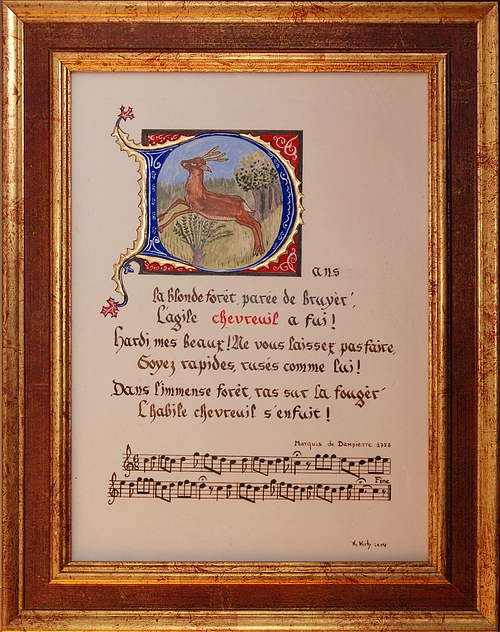 Dans
la blonde forêt, parée de bruyèr',
L'agile chevreuil a fui!
Hardi, mes beaux! Ne vous laissez pas faire,
Soyez rapides, rusés comme lui!
Dans l'immense forêt, ras sur la fougèr'
L'habile chevreuil s'enfuit!
Marquis de Dampierre 1723
Fine